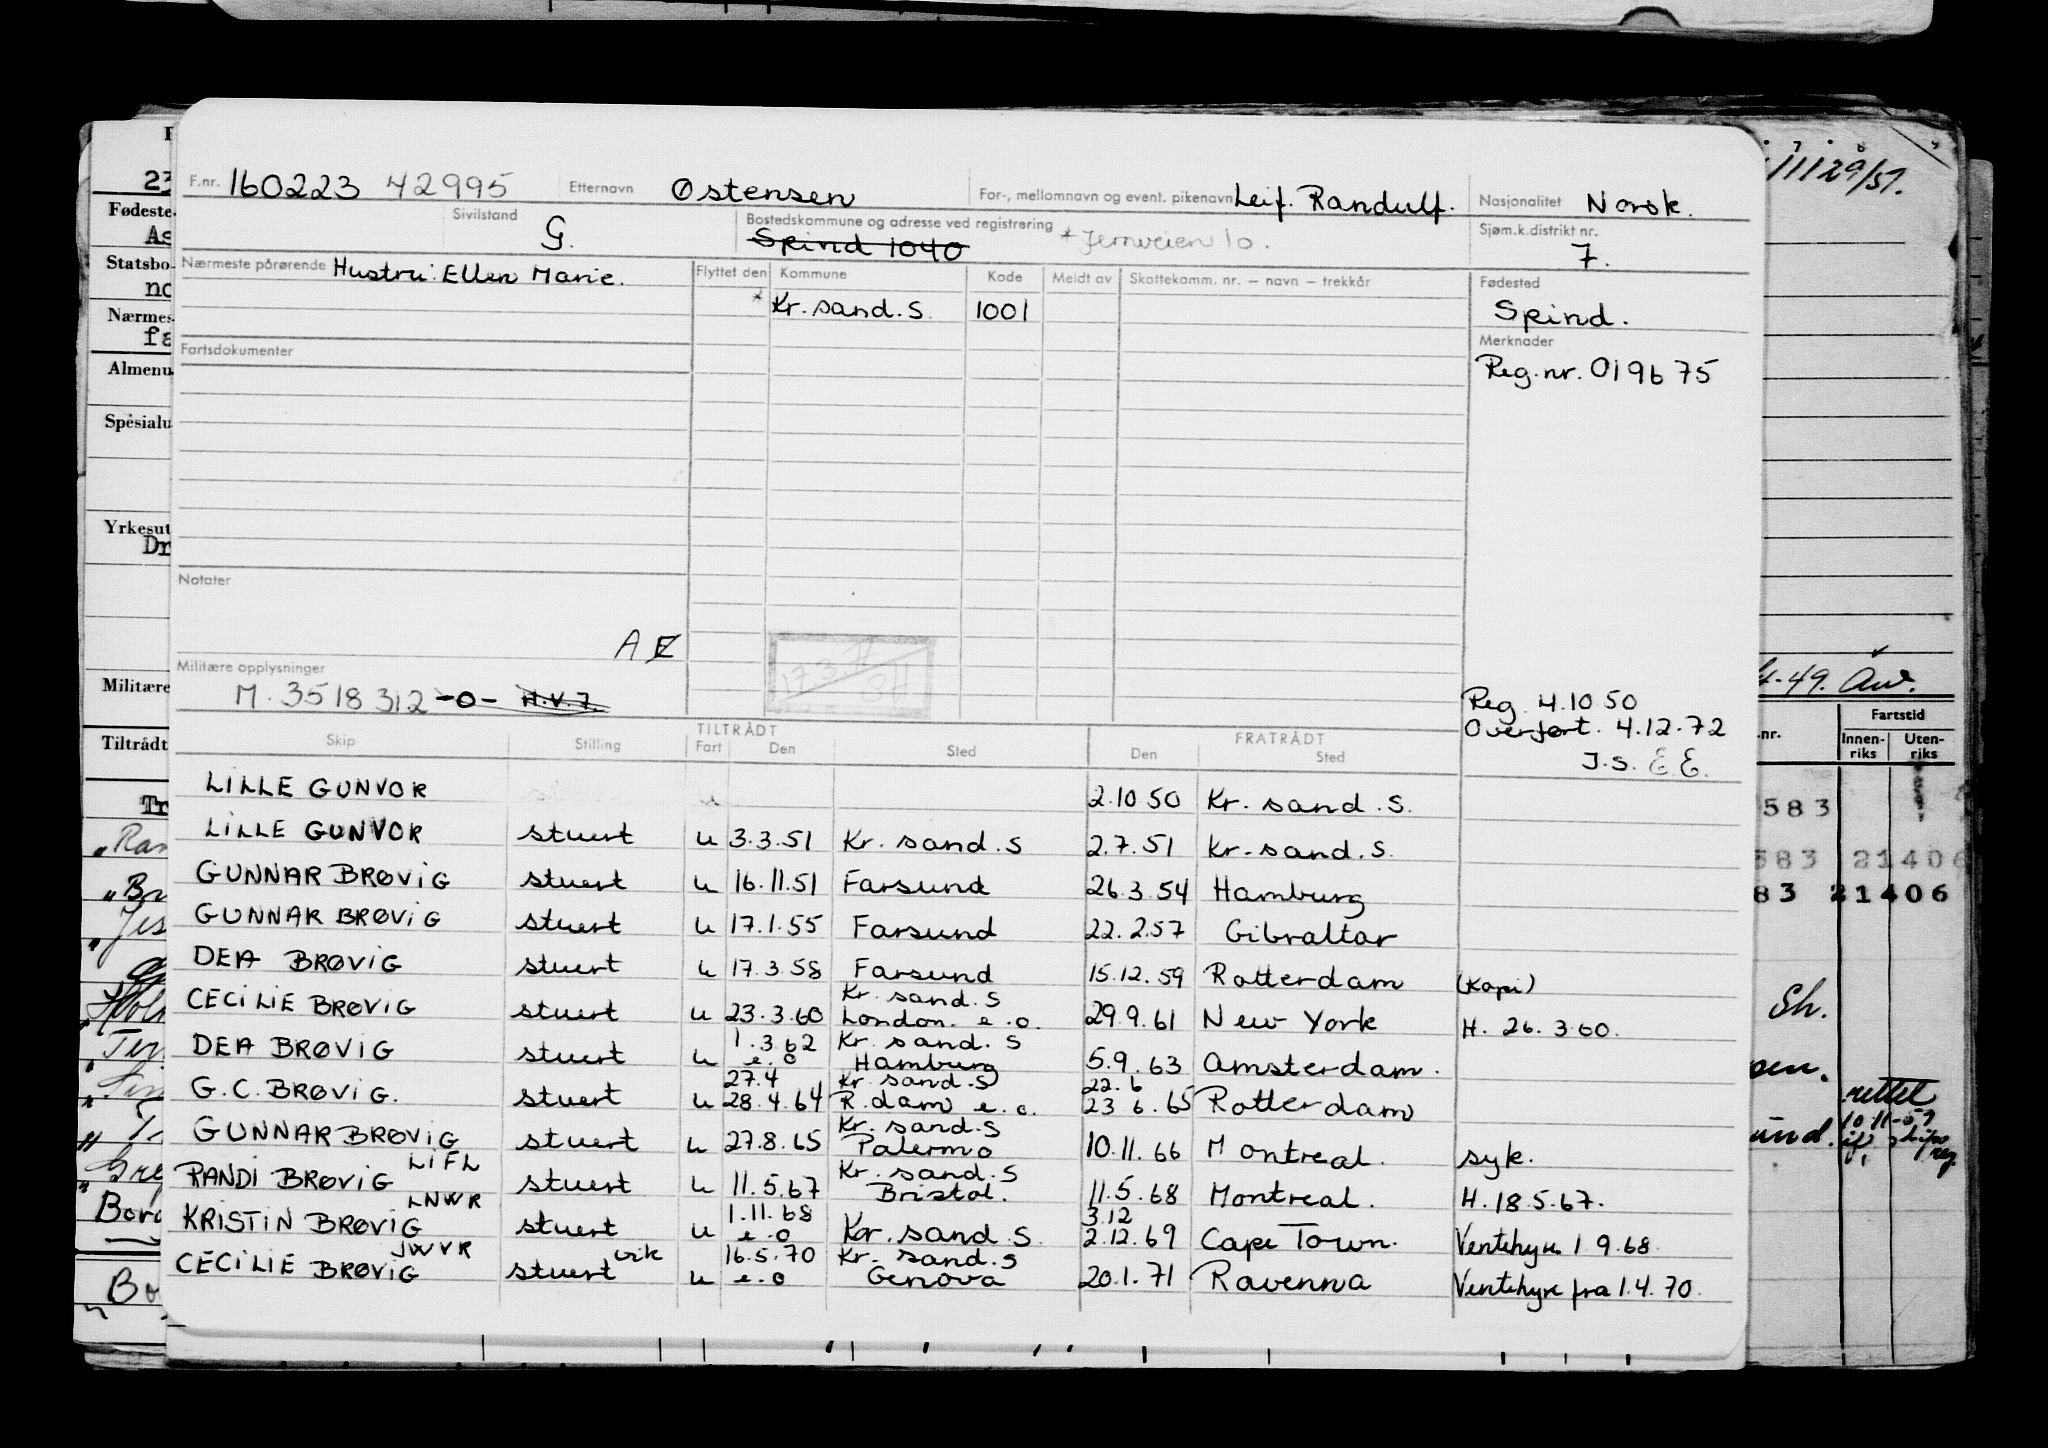 F.nr. 160223 42995 Etternavn Østensen For-, mellomnavn og event. pikenavn Leif. Randulf. Nasjonalitet Norsk.
Sivilstand G. Bostedskommune og adresse ved registrering Spind 1040 * Jernveien 10. Sjøm.k.distrikt nr. 7.
Nærmeste pårørende Hustru: Ellen Marie. Flyttet den Kommune Kode Meldt av Skattekomm. nr. – navn – trekkår Fødested
* Kr. sand. S. 1001 Spind.
Fartsdokumenter Merknader
Reg. nr. 019675
Notater
A E
Militære opplysninger 17.3 SH
M. 3518312 -o- H.V. 7. Reg. 4.10.50
Overført. 4.12.72
J.S. E.E.
TILTRÅDT FRATRÅDT
Skip Stilling Fart Den Sted Den Sted
LILLE GUNVOR 2.10.50 Kr. sand. S.
LILLE GUNVOR stuert u 3.3.51 Kr. sand. S 2.7.51 Kr. sand. S.
GUNNAR BRØVIG stuert u 16.11.51 Farsund 26.3.54 Hamburg
GUNNAR BRØVIG stuert u 17.1.55 Farsund 22.2.57 Gibraltar
DEA BRØVIG stuert u 17.3.58 Farsund 15.12.59 Rotterdam (Kopi)
CECILIE BRØVIG stuert u 23.3.60 Kr. sand. S London. e.o. 29.9.61 New York H. 26.3.60.
DEA BRØVIG stuert u 1.3.62 e.o Kr. sand. S Hamburg 5.9.63 Amsterdam.
G.C. BRØVIG. stuert u 27.4 28.4.64 Kr. sand. S R.dam e.o. 22.6 23.6.65 Rotterdam
GUNNAR BRØVIG stuert u 27.8.65 Kr. sand. S Palermo 10.11.66 Montreal. syk.
RANDI BRØVIG LIFL stuert u 11.5.67 Kr. sand. S Bristol. 11.5.68 Montreal. H. 18.5.67.
KRISTIN BRØVIG LNWR stuert u 1.11.68 e.o Kr. sand. S. 3.12 2.12.69 Cape Town. Ventehyre 1.9.68.
CECILIE BRØVIG JWVR stuert vik u 16.5.70 e.o Kr. sand. S Genova 20.1.71 Ravenna Ventehyre fra 1.4.70.
Fødeste
Statsbo
Nærmes
Almenu
Spesialu
Yrkesut
Dr
Militære
Tiltrådt
29/51.
4-49.
nr. Fartstid
Innen-riks Uten-riks
583
583 21406
83 21406
Sh.
rettet
10.11-59